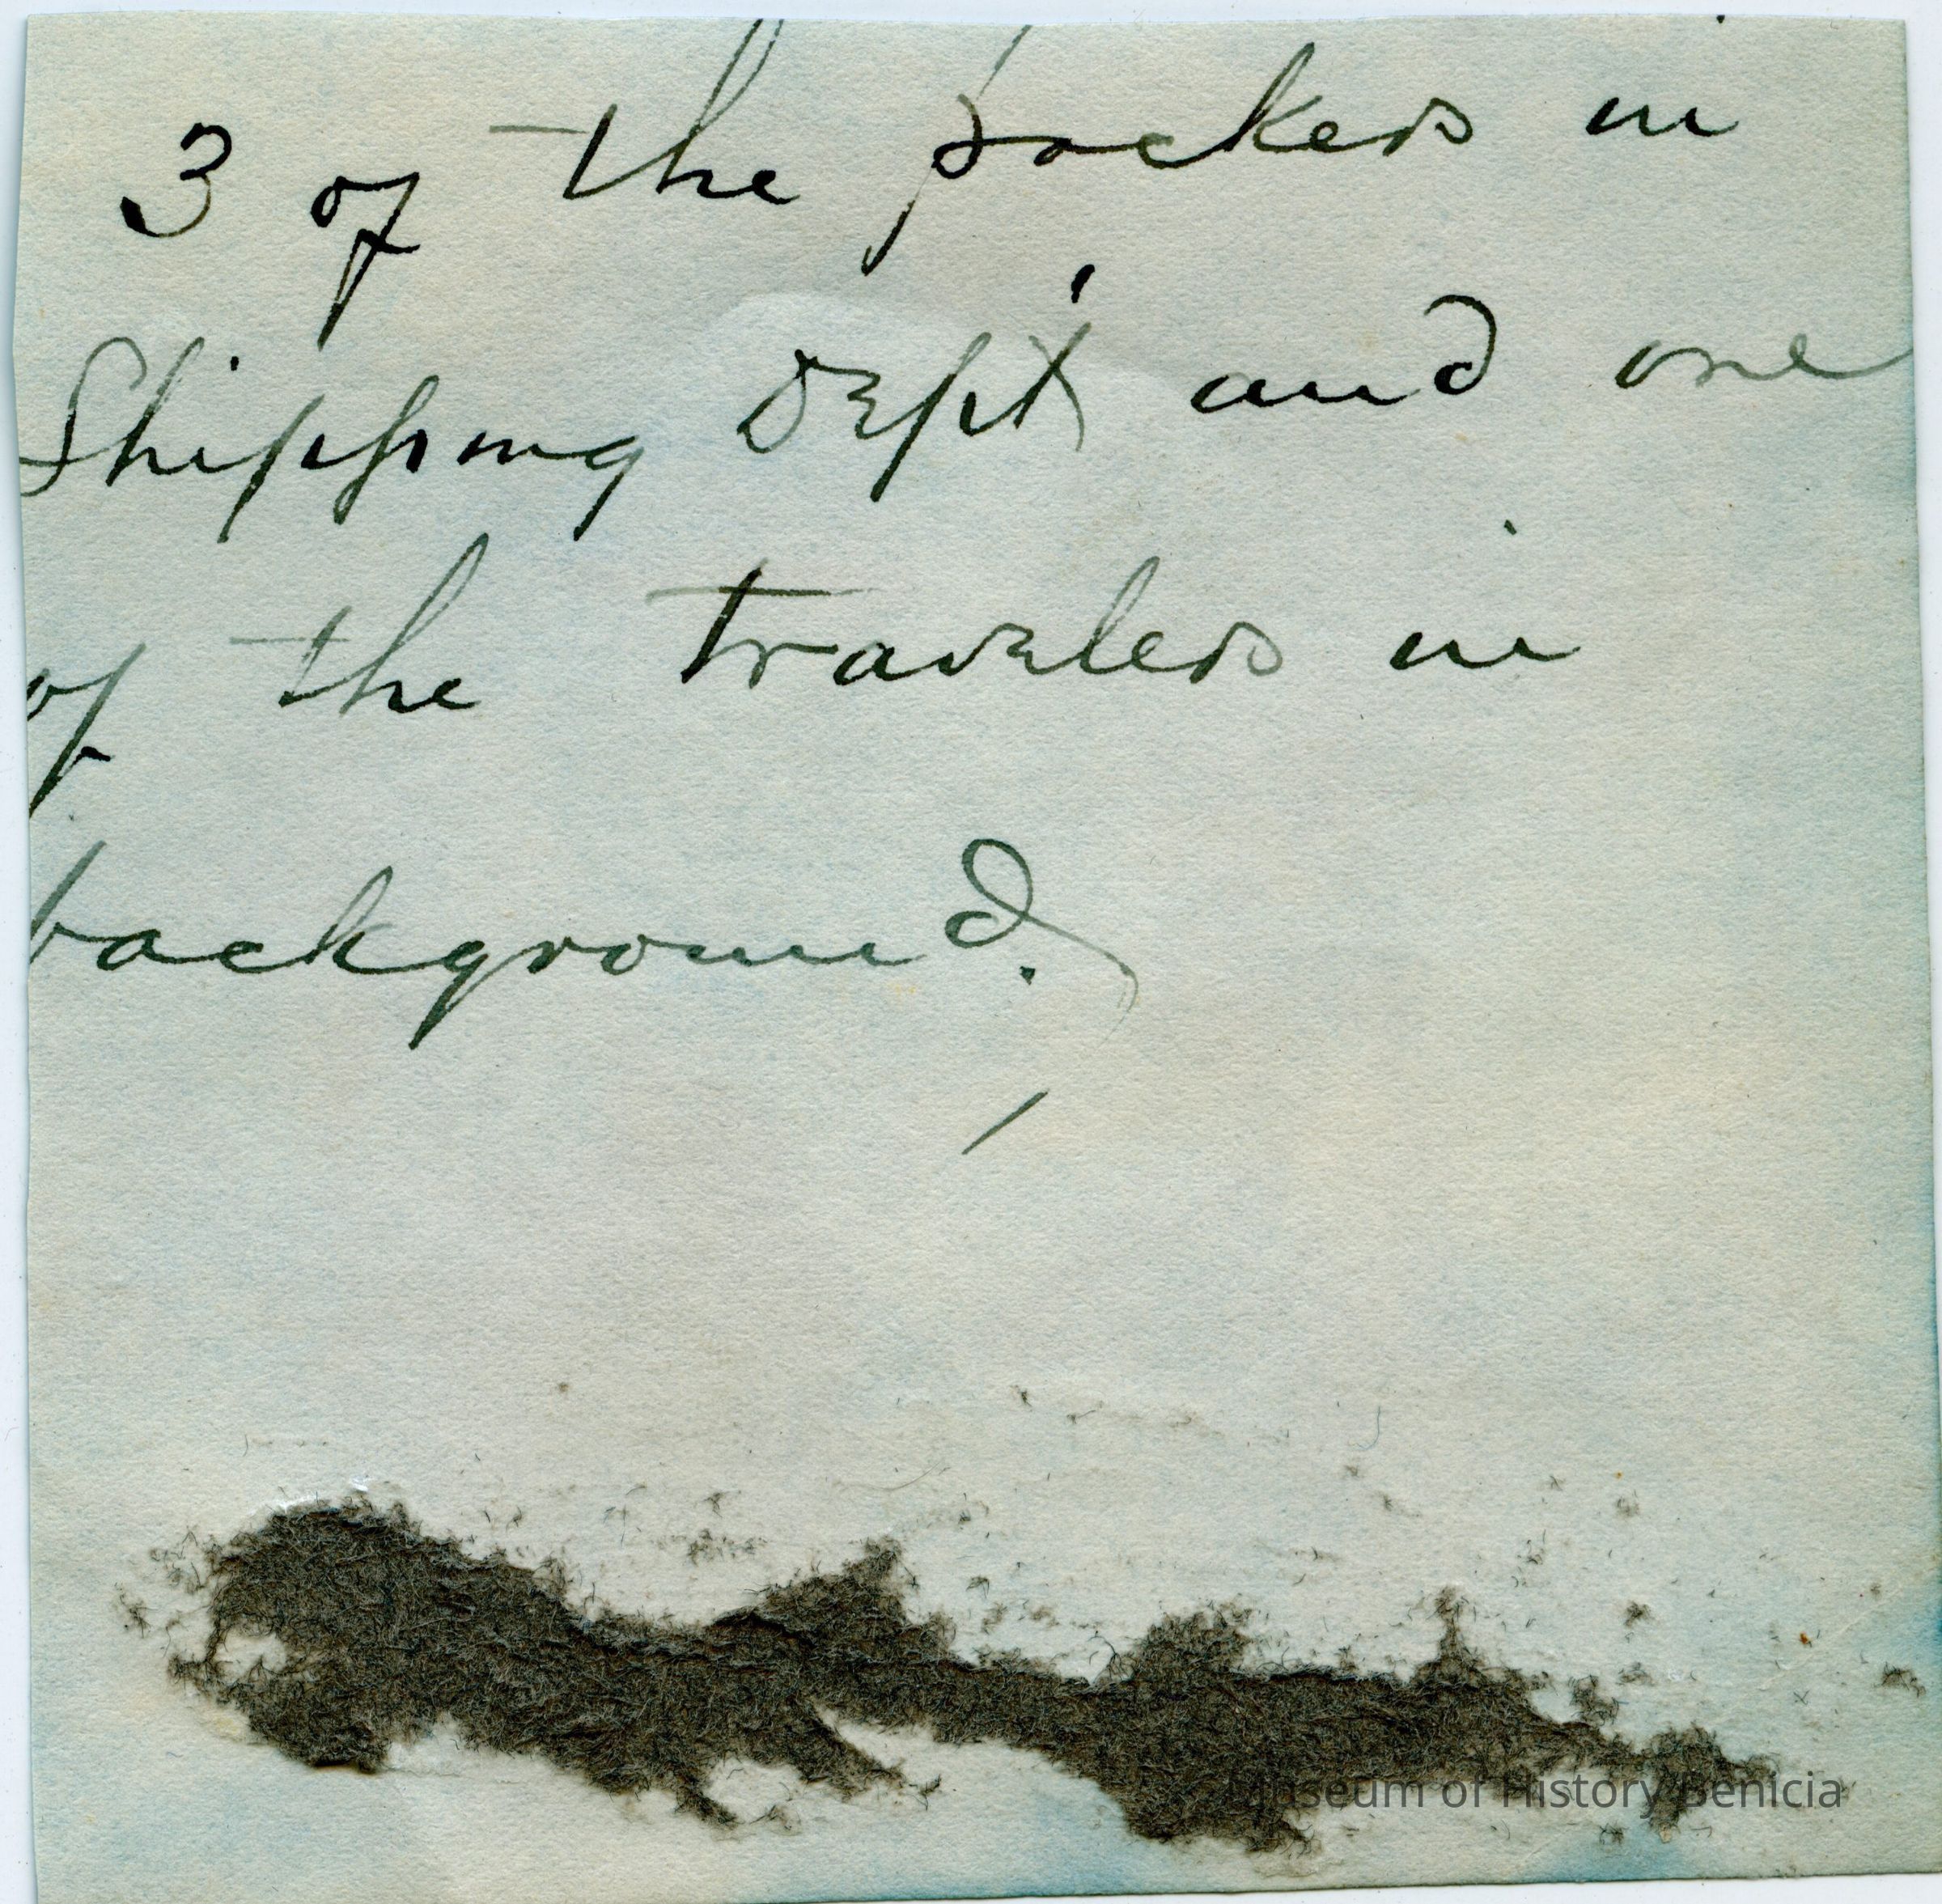 3 of the packers in
Shipping Dept and one
of the travelers in
background.
Museum of History Benicia